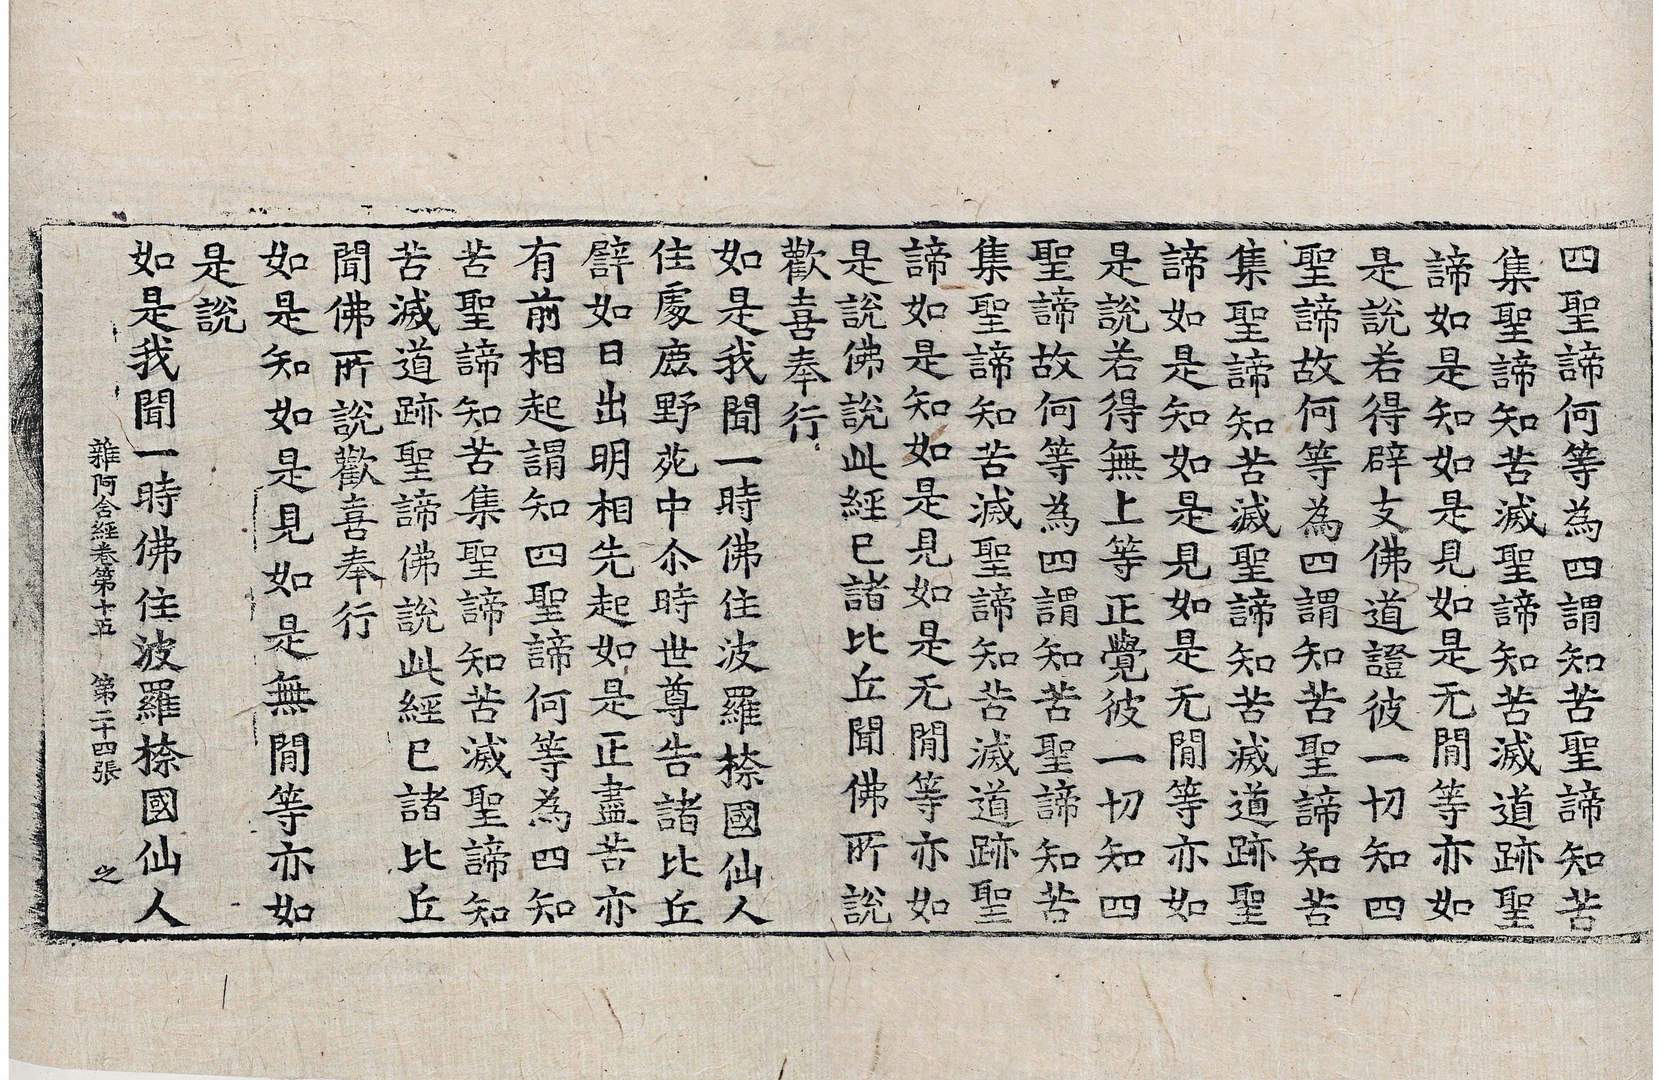 四聖諦何等為四謂知苦聖諦知苦
集聖諦知苦滅聖諦知苦滅道跡聖
諦如是知如是見如是无閒等亦如
是說若得辟支佛道證彼一切知四
聖諦故何等為四謂知苦聖諦知苦
集聖諦知苦滅聖諦知苦滅道跡聖
諦如是知如是見如是无閒等亦如
是說若得無上等正覺彼一切知四
聖諦故何等為四謂知苦聖諦知苦
集聖諦知苦滅聖諦知苦滅道跡聖
諦如是知如是見如是无閒等亦如
是說佛說此經已諸比丘聞佛所說
歡喜奉行
如是我聞一時佛住波羅㮈國仙人
住處鹿野苑中尒時世尊告諸比丘
譬如日出明相先起如是正盡苦亦
有前相起謂知四聖諦何等為四知
苦聖諦知苦集聖諦知苦滅聖諦知
苦滅道跡聖諦佛說此經已諸比丘
聞佛所說歡喜奉行
如是知如是見如是無閒等亦如
是說
如是我聞一時佛住波羅㮈國仙人
雜阿含經卷第十五 第二十四張 之